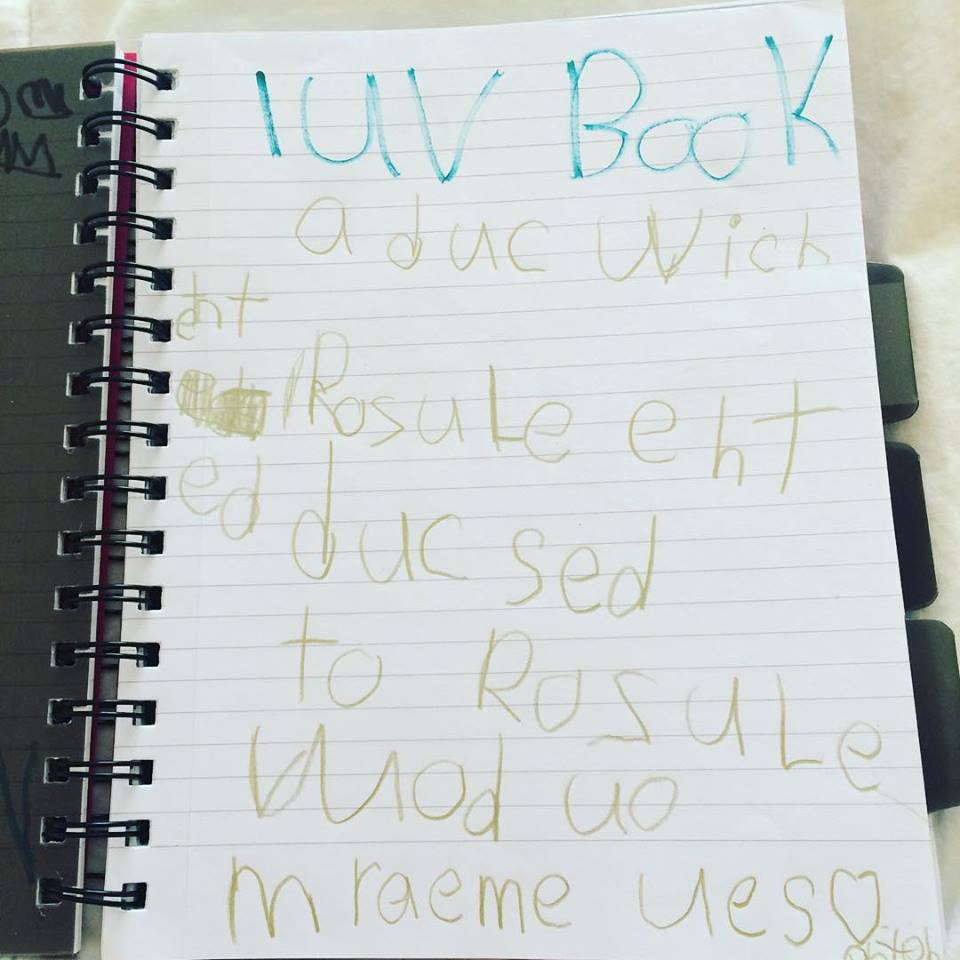 IUV BOOK
a duc Wich
eht
Rosule eht
ed duc sed
to Rosule
Wod uo
mraeme ues♡